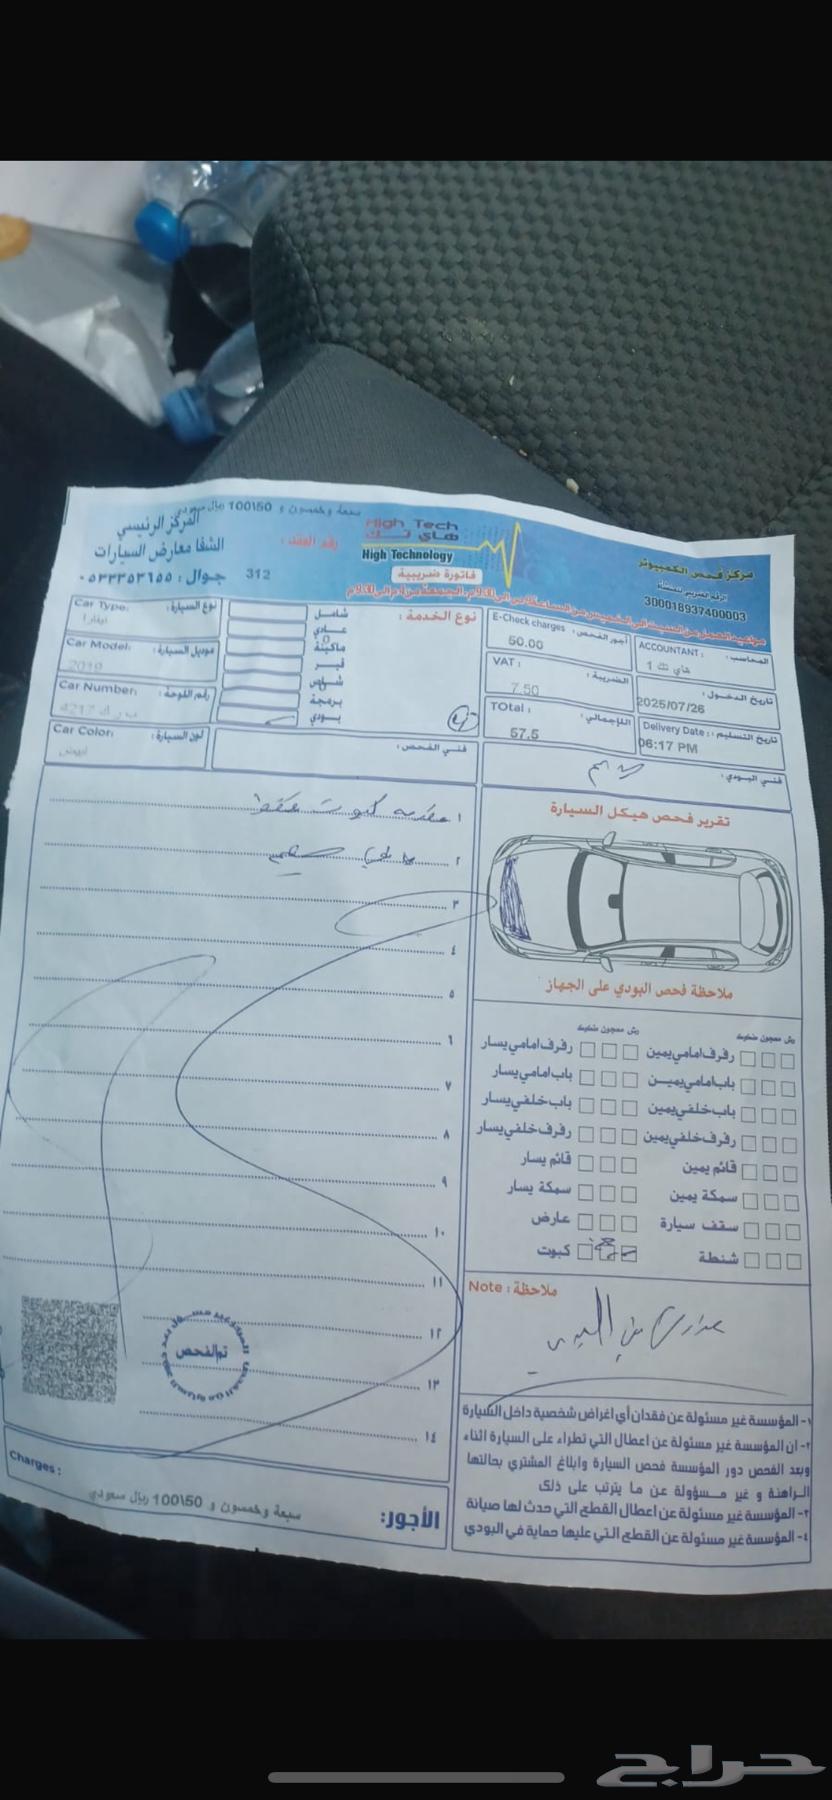 سبعة وخمسون و 50\100 ريال سعودي
المركز الرئيسي
الشفا معارض السيارات
جوال : ٠٥٣٣٣٥٣٦٥٥
رقم العقد :
312
High Tech
هاي تك
High Technology
فاتورة ضريبية
مركز فحص الكمبيوتر
الرقم الضريبي للمنشأة
300018937400003
Car Type:
نوع السيارة :
Car Model:
موديل السيارة :
2019
Car Number:
رقم اللوحة :
4217
Car Color:
لون السيارة :
ابيض
نوع الخدمة :
شامل
عادي
ماكينة
قير
شاص
برمجة
بودي
فني الفحص :
E-Check charges
أجور الفحص :
50.00
VAT :
الضريبة :
7.50
TOtal :
الإجمالي :
57.5
ACCOUNTANT :
المحاسب :
هاي تك 1
تاريخ الدخول :
2025/07/26
Delivery Date :
تاريخ التسليم :
06:17 PM
فني البودي :
تقرير فحص هيكل السيارة
ملاحظة فحص البودي على الجهاز
رش معجون سمكرة
رش معجون سمكرة
رفرف امامي يمين
رفرف امامي يسار
باب امامي يمين
باب امامي يسار
باب خلفي يمين
باب خلفي يسار
رفرف خلفي يمين
رفرف خلفي يسار
قائم يمين
قائم يسار
سمكة يمين
سمكة يسار
سقف سيارة
عارض
شنطة
كبوت
١ مقدمة كبوت فقط
٢
٣
٤
٥
٦
٧
٨
٩
١٠
١١
١٢
١٣
١٤
تم الفحص
Note : ملاحظة
١- المؤسسة غير مسئولة عن فقدان أي أغراض شخصية داخل السيارة
٢- ان المؤسسة غير مسئولة عن اعطال التي تطراء على السيارة اثناء
وبعد الفحص دور المؤسسة فحص السيارة وابلاغ المشتري بحالتها
الراهنة و غير مسؤولة عن ما يترتب على ذلك
٣- المؤسسة غير مسئولة عن اعطال القطع التي حدث لها صيانة
٤- المؤسسة غير مسئولة عن القطع التي عليها حماية في البودي
Charges :
سبعة وخمسون و 50\100 ريال سعودي
الأجور:
حراج